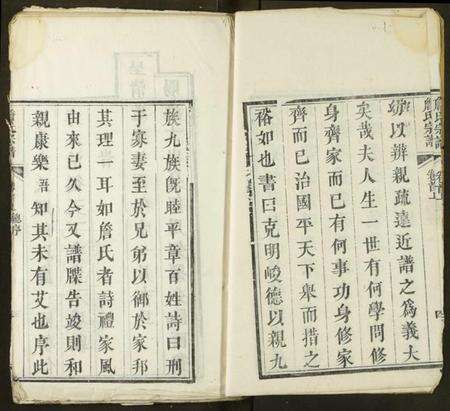 詹氏宗譜
卷首上
所以辨親疏遠近譜之為義大
矣哉夫人生一世有何學問修
身齊家而已有何事功身修家
齊而已治國平天下舉而措之
裕如也書曰克明峻德以親九
族九族旣睦平章百姓詩曰刑
于寡妻至於兄弟以御於家邦
其理一耳如詹氏者詩禮家風
由來已久今又譜牒告竣則和
親康樂吾知其未有艾也序此